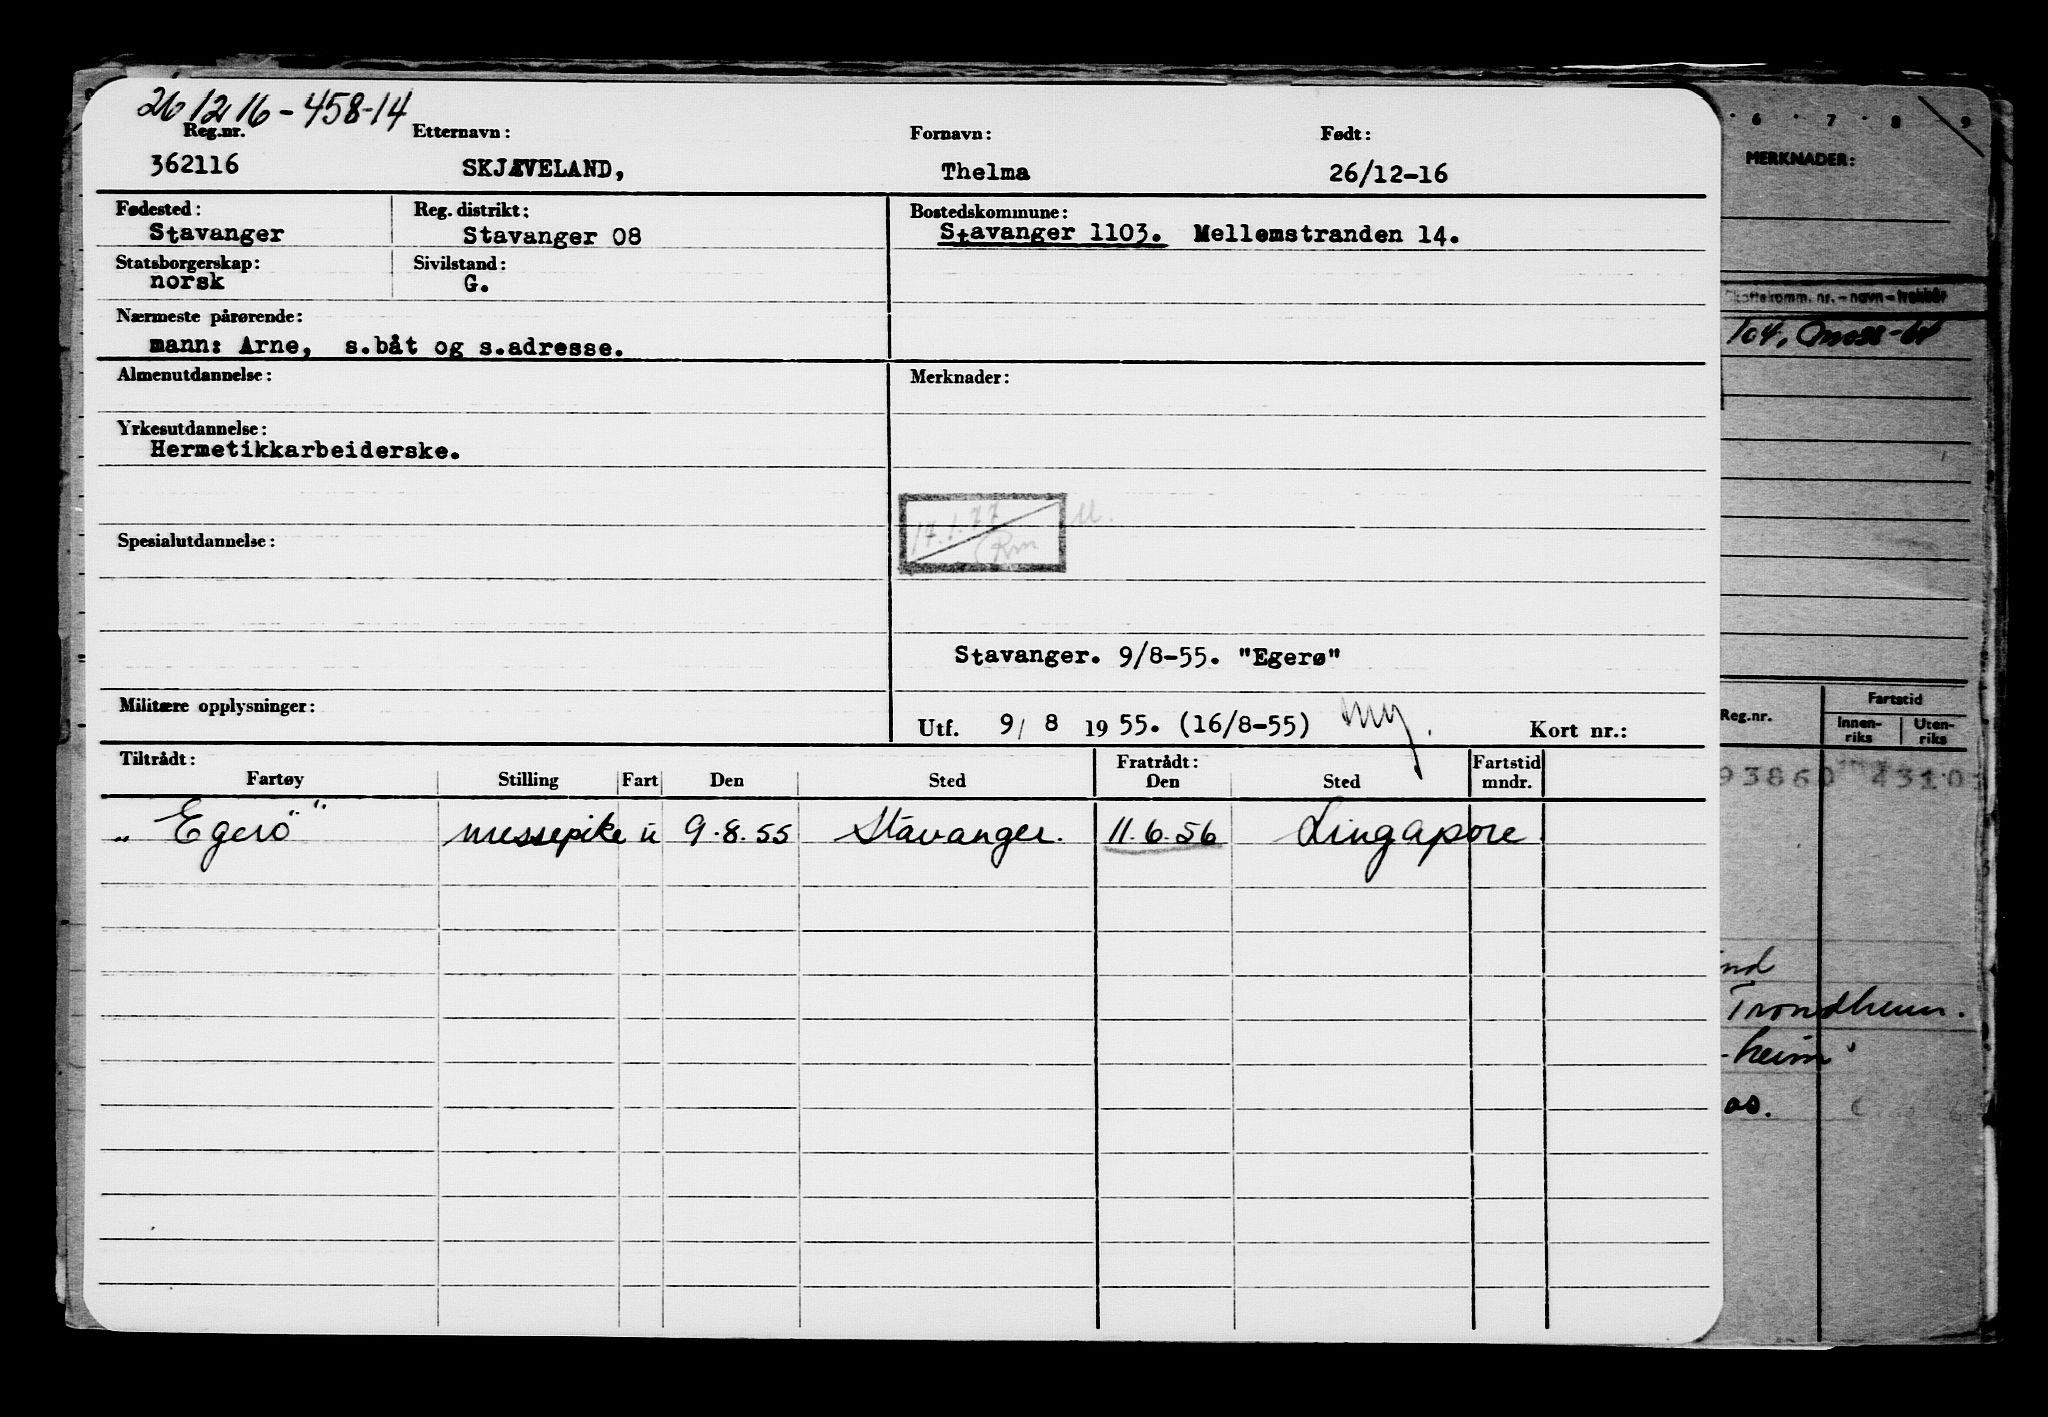 26 12 16 - 458-14
Reg.nr. Etternavn: Fornavn: Født:
362116 SKJÆVELAND, Thelma 26/12-16
Fødested: Reg. distrikt: Bostedskommune:
Stavanger Stavanger 08 Stavanger 1103. Mellomstranden 14.
Statsborgerskap: Sivilstand:
norsk G.
Nærmeste pårørende:
mann: Arne, s.båt og s.adresse.
Almenutdannelse: Merknader:
Yrkesutdannelse:
Hermetikkarbeiderske.
17.1.77
Spesialutdannelse:
Stavanger. 9/8-55. "Egerø"
Militære opplysninger:
Utf. 9/ 8 1955. (16/8-55) Kort nr.:
Tiltrådt: Fratrådt: Fartstid
Fartøy Stilling Fart Den Sted Den Sted mndr.
"Egerö" messepike u 9.8.55 Stavanger. 11.6.56 Singapore
6 7 8 9
MERKNADER:
Skattekomm. nr. - navn - trekkår
104, Moss
Reg.nr. Fartstid
Innen-riks Uten-riks
93860 4310
Trondheim.
-heim